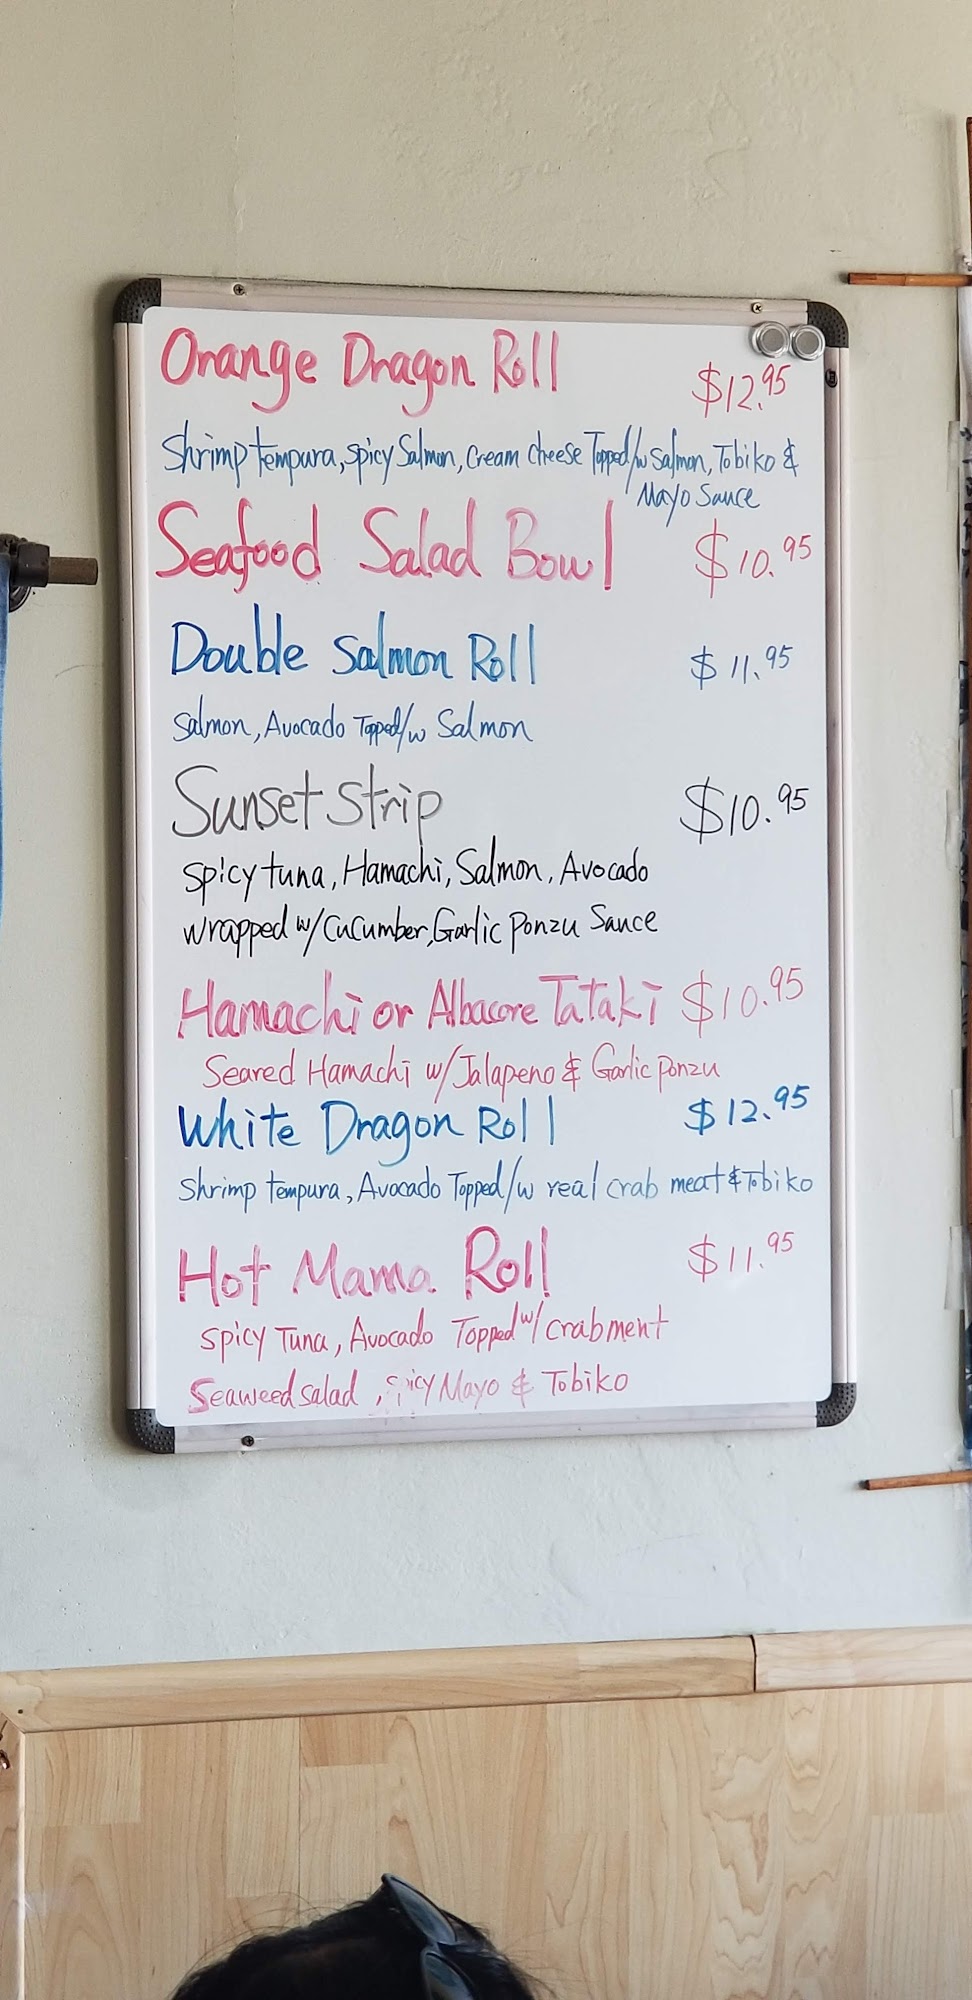 Orange Dragon Roll $12.95
Shrimp tempura, spicy Salmon, Cream cheese Topped/w Salmon, Tobiko &
Mayo Sauce
Seafood Salad Bowl $10.95
Double Salmon Roll $11.95
Salmon, Avocado Topped/w Salmon
Sunset Strip $10.95
Spicy tuna, Hamachi, Salmon, Avocado
wrapped w/Cucumber, Garlic Ponzu Sauce
Hamachi or Albacore Tataki $10.95
Seared Hamachi w/Jalapeno & Garlic Ponzu
White Dragon Roll $12.95
Shrimp tempura, Avocado Topped/w real crab meat & Tobiko
Hot Mama Roll $11.95
Spicy Tuna, Avocado Topped w/ crabment
Seaweed salad, Spicy Mayo & Tobiko